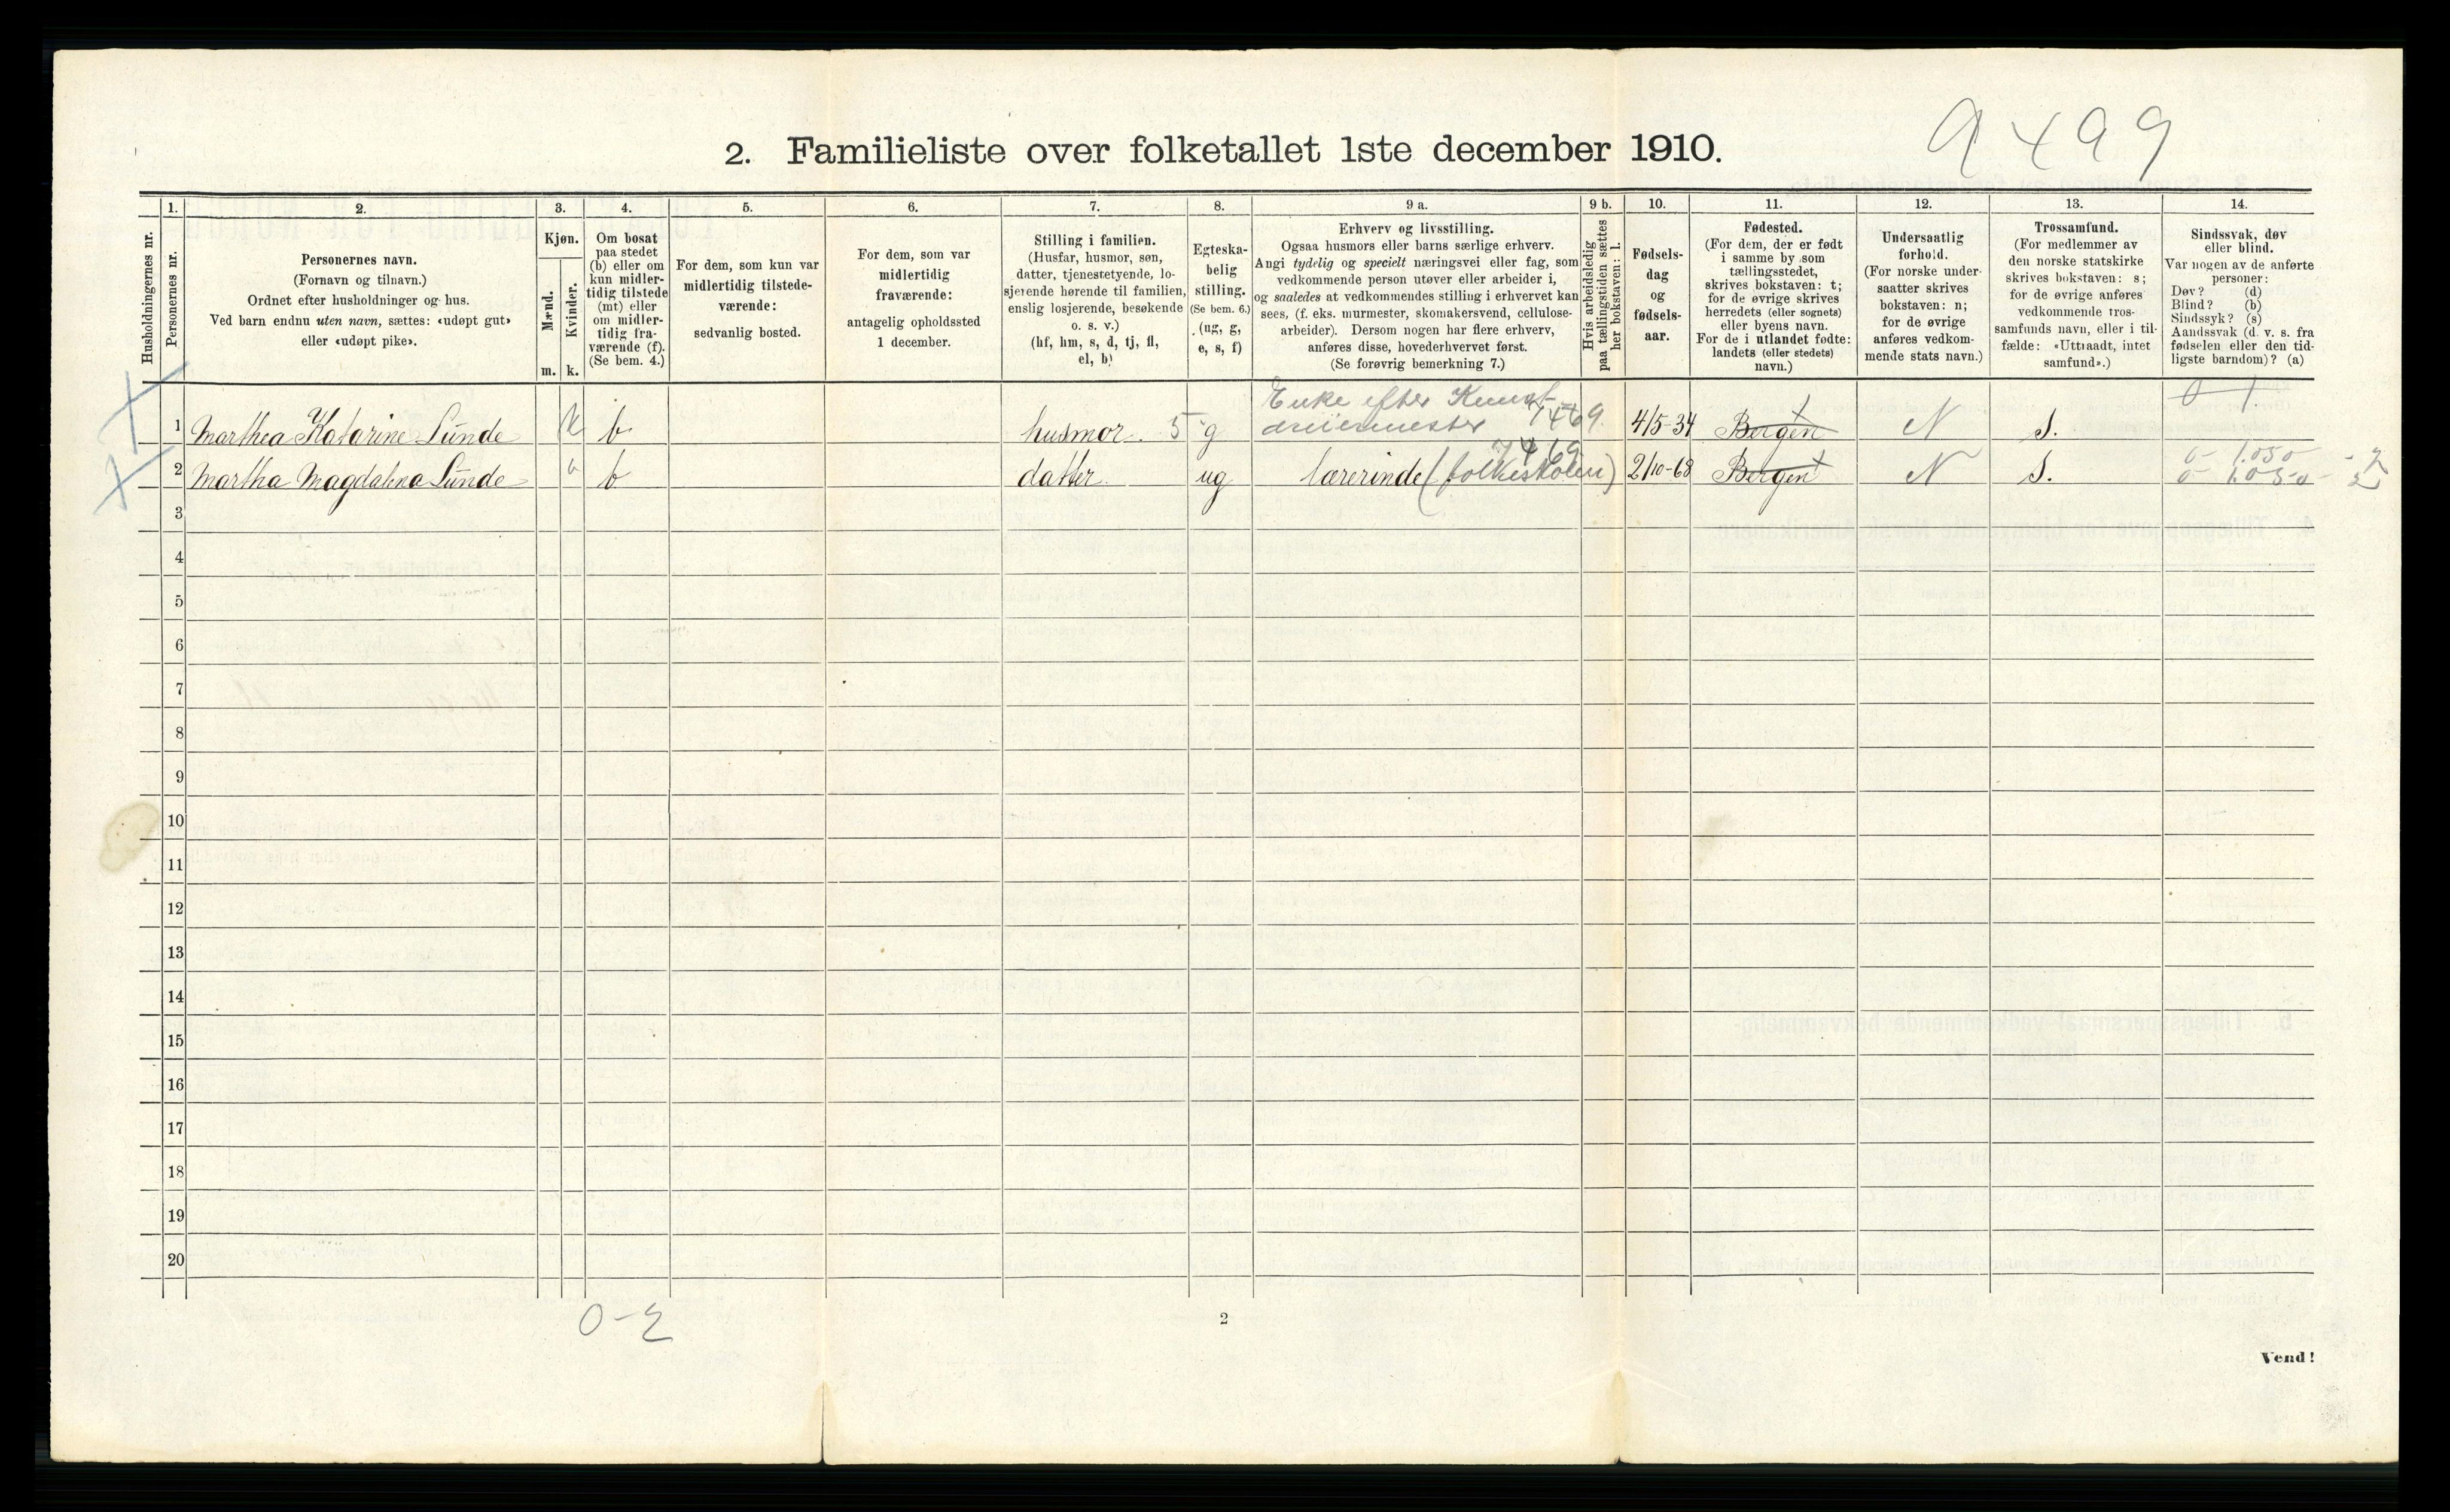 9499
2. Familieliste over folketallet 1ste december 1910.
Husholdningernes nr.
1. Personernes nr.
2. Personernes navn.
(Fornavn og tilnavn.)
Ordnet efter husholdninger og hus.
Ved barn endnu uten navn, sættes: «udøpt gut»
eller «udøpt pike».
3. Kjøn.
Mænd. m.
Kvinder. k.
4. Om bosat
paa stedet
(b) eller om
kun midler-
tidig tilstede
(mt) eller
om midler-
tidig fra-
værende (f).
(Se bem. 4.)
5. For dem, som kun var
midlertidig tilstede-
værende:
sedvanlig bosted.
6. For dem, som var
midlertidig
fraværende:
antagelig opholdssted
1 december.
7. Stilling i familien.
(Husfar, husmor, søn,
datter, tjenestetyende, lo-
sjerende hørende til familien,
enslig losjerende, besøkende
o. s. v.)
(hf, hm, s, d, tj, fl,
el, b)
8. Egteska-
belig
stilling.
(Se bem. 6.)
(ug, g,
e, s, f)
9 a. Erhverv og livsstilling.
Ogsaa husmors eller barns særlige erhverv.
Angi tydelig og specielt næringsvei eller fag, som
vedkommende person utøver eller arbeider i,
og saaledes at vedkommendes stilling i erhvervet kan
sees, (f. eks. murmester, skomakersvend, cellulose-
arbeider). Dersom nogen har flere erhverv,
anføres disse, hovederhvervet først.
(Se forøvrig bemerkning 7.)
9 b. Hvis arbeidsledig
paa tællingstiden sættes
her bokstaven: l.
10. Fødsels-
dag
og
fødsels-
aar.
11. Fødested.
(For dem, der er født
i samme by som
tællingsstedet,
skrives bokstaven: t;
for de øvrige skrives
herredets (eller sognets)
eller byens navn.
For de i utlandet fødte:
landets (eller stedets)
navn.)
12. Undersaatlig
forhold.
(For norske under-
saatter skrives
bokstaven: n;
for de øvrige
anføres vedkom-
mende stats navn.)
13. Trossamfund.
(For medlemmer av
den norske statskirke
skrives bokstaven: s;
for de øvrige anføres
vedkommende tros-
samfunds navn, eller i til-
fælde: «Uttraadt, intet
samfund».)
14. Sindssvak, døv
eller blind.
Var nogen av de anførte
personer:
Døv? (d)
Blind? (b)
Sindssyk? (s)
Aandssvak (d. v. s. fra
fødselen eller den tid-
ligste barndom)? (a)
1 Marthea Katarine Lunde k b husmor. 5 g Enke efter Kunst- 7469. 4/5-34 Bergen t N S. 0 1.
2 Martha Magdalena Lunde k b datter. ug lærerinde (folkeskolen) 7469 2/10-68 Bergen t N S. 0 1.050 - 2
3
4
5
6
7
8
9
10
11
12
13
14
15
16
17
18
19
20
0-2
2
Vend!